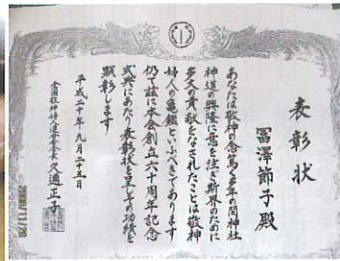 表彰状
冨澤節子殿
あなたは敬神の念篤く多年の間神社
神道の興隆に意を注ぎ斯界のために
多大の貢献をなされたことは敬神
婦人の亀鑑というべきであります
仍て茲に本会創立六十周年記念
式典にあたり表彰状を呈しその功績を
顕彰します
平成二十年九月二十五日
全国敬神婦人連合会会長 久邇正子
2008/11/29